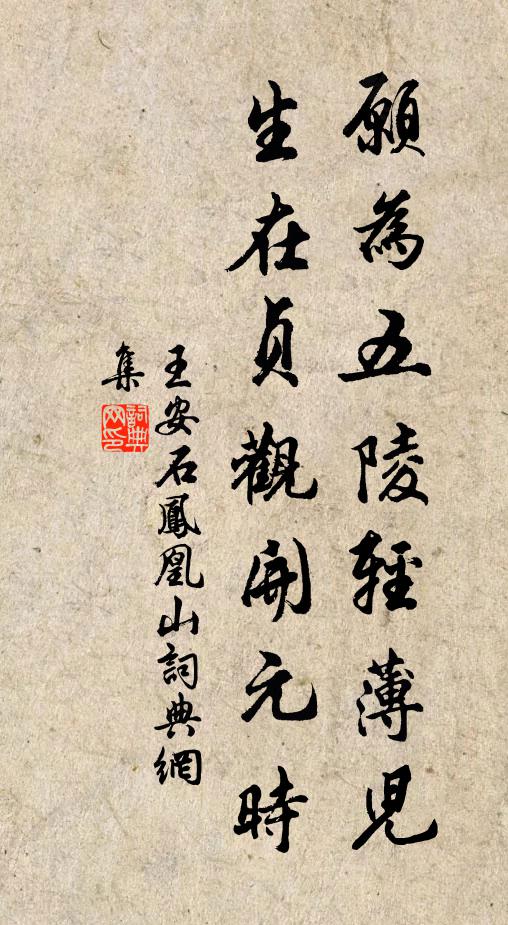 願為五陵輕薄兒
生在貞觀開元時
王安石鳳凰山詞典網
集
詞典網印